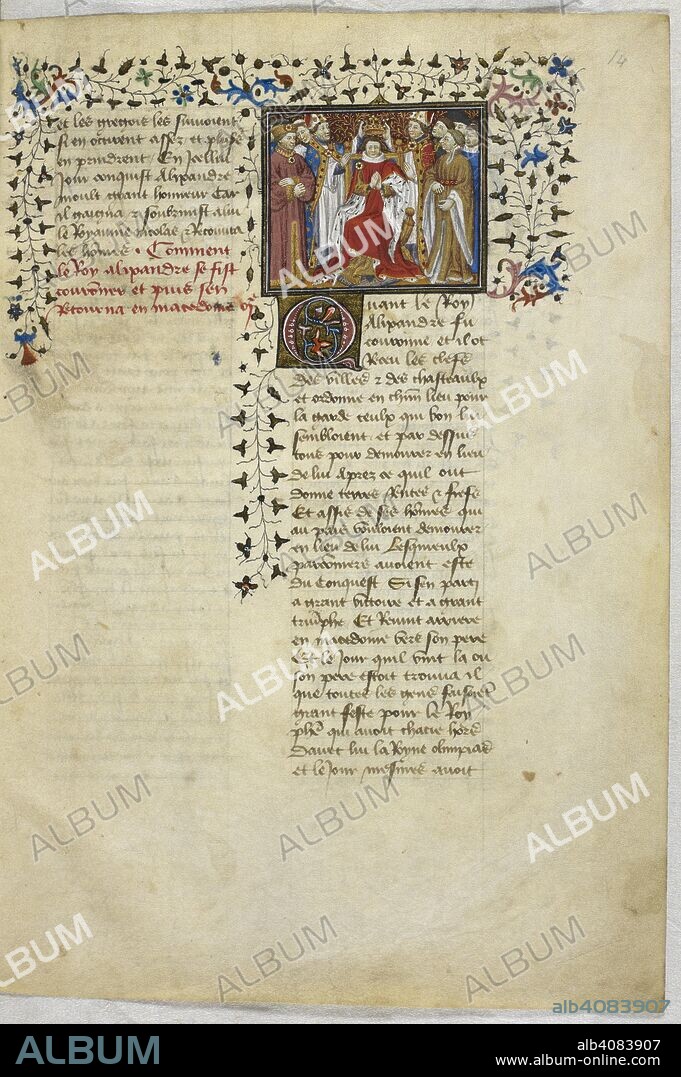 14
et les gregois les suivoient
si en occirent assez et plus
en prindrent. En icellui
jour conquist alixandre
moult grant honneur Car
il gaigna & soubzmist a lui
le Royaume nicolas & Recouvra
les hommes. Comment
le Roy alixandre se fist
couronner et puis sen
Retourna en macedone
Quant le Roy
Alixandre fu
couronne et il ot
Receu les clefs
des villes & des chasteaulx
et ordonne en chun lieu pour
la garde ceulx qui bon lui
sembloient. et par dessus
tous pour demourer en lieu
de lui Aprez ce quil out
donne terres Rentes & fiefs
Et assis de ses hommes qui
au pais vouloient demourer
en lieu de lui Lesquieulx
parconniers avoient este
du Conquest Si sen parti
a grant victoire et a grant
triumphe Et Revint arriere
en macedone vers son pere
Et le jour quil vint la ou
son pere estoit trouva il
que toutes les gens faisoient
grant feste pour le Roy
phe qui avoit chacie hors
davec lui la Royne olimpias
et le jour mesmes avoit
ALBUM
alb4083907
ALBUM
alb4083907
www.album-online.com